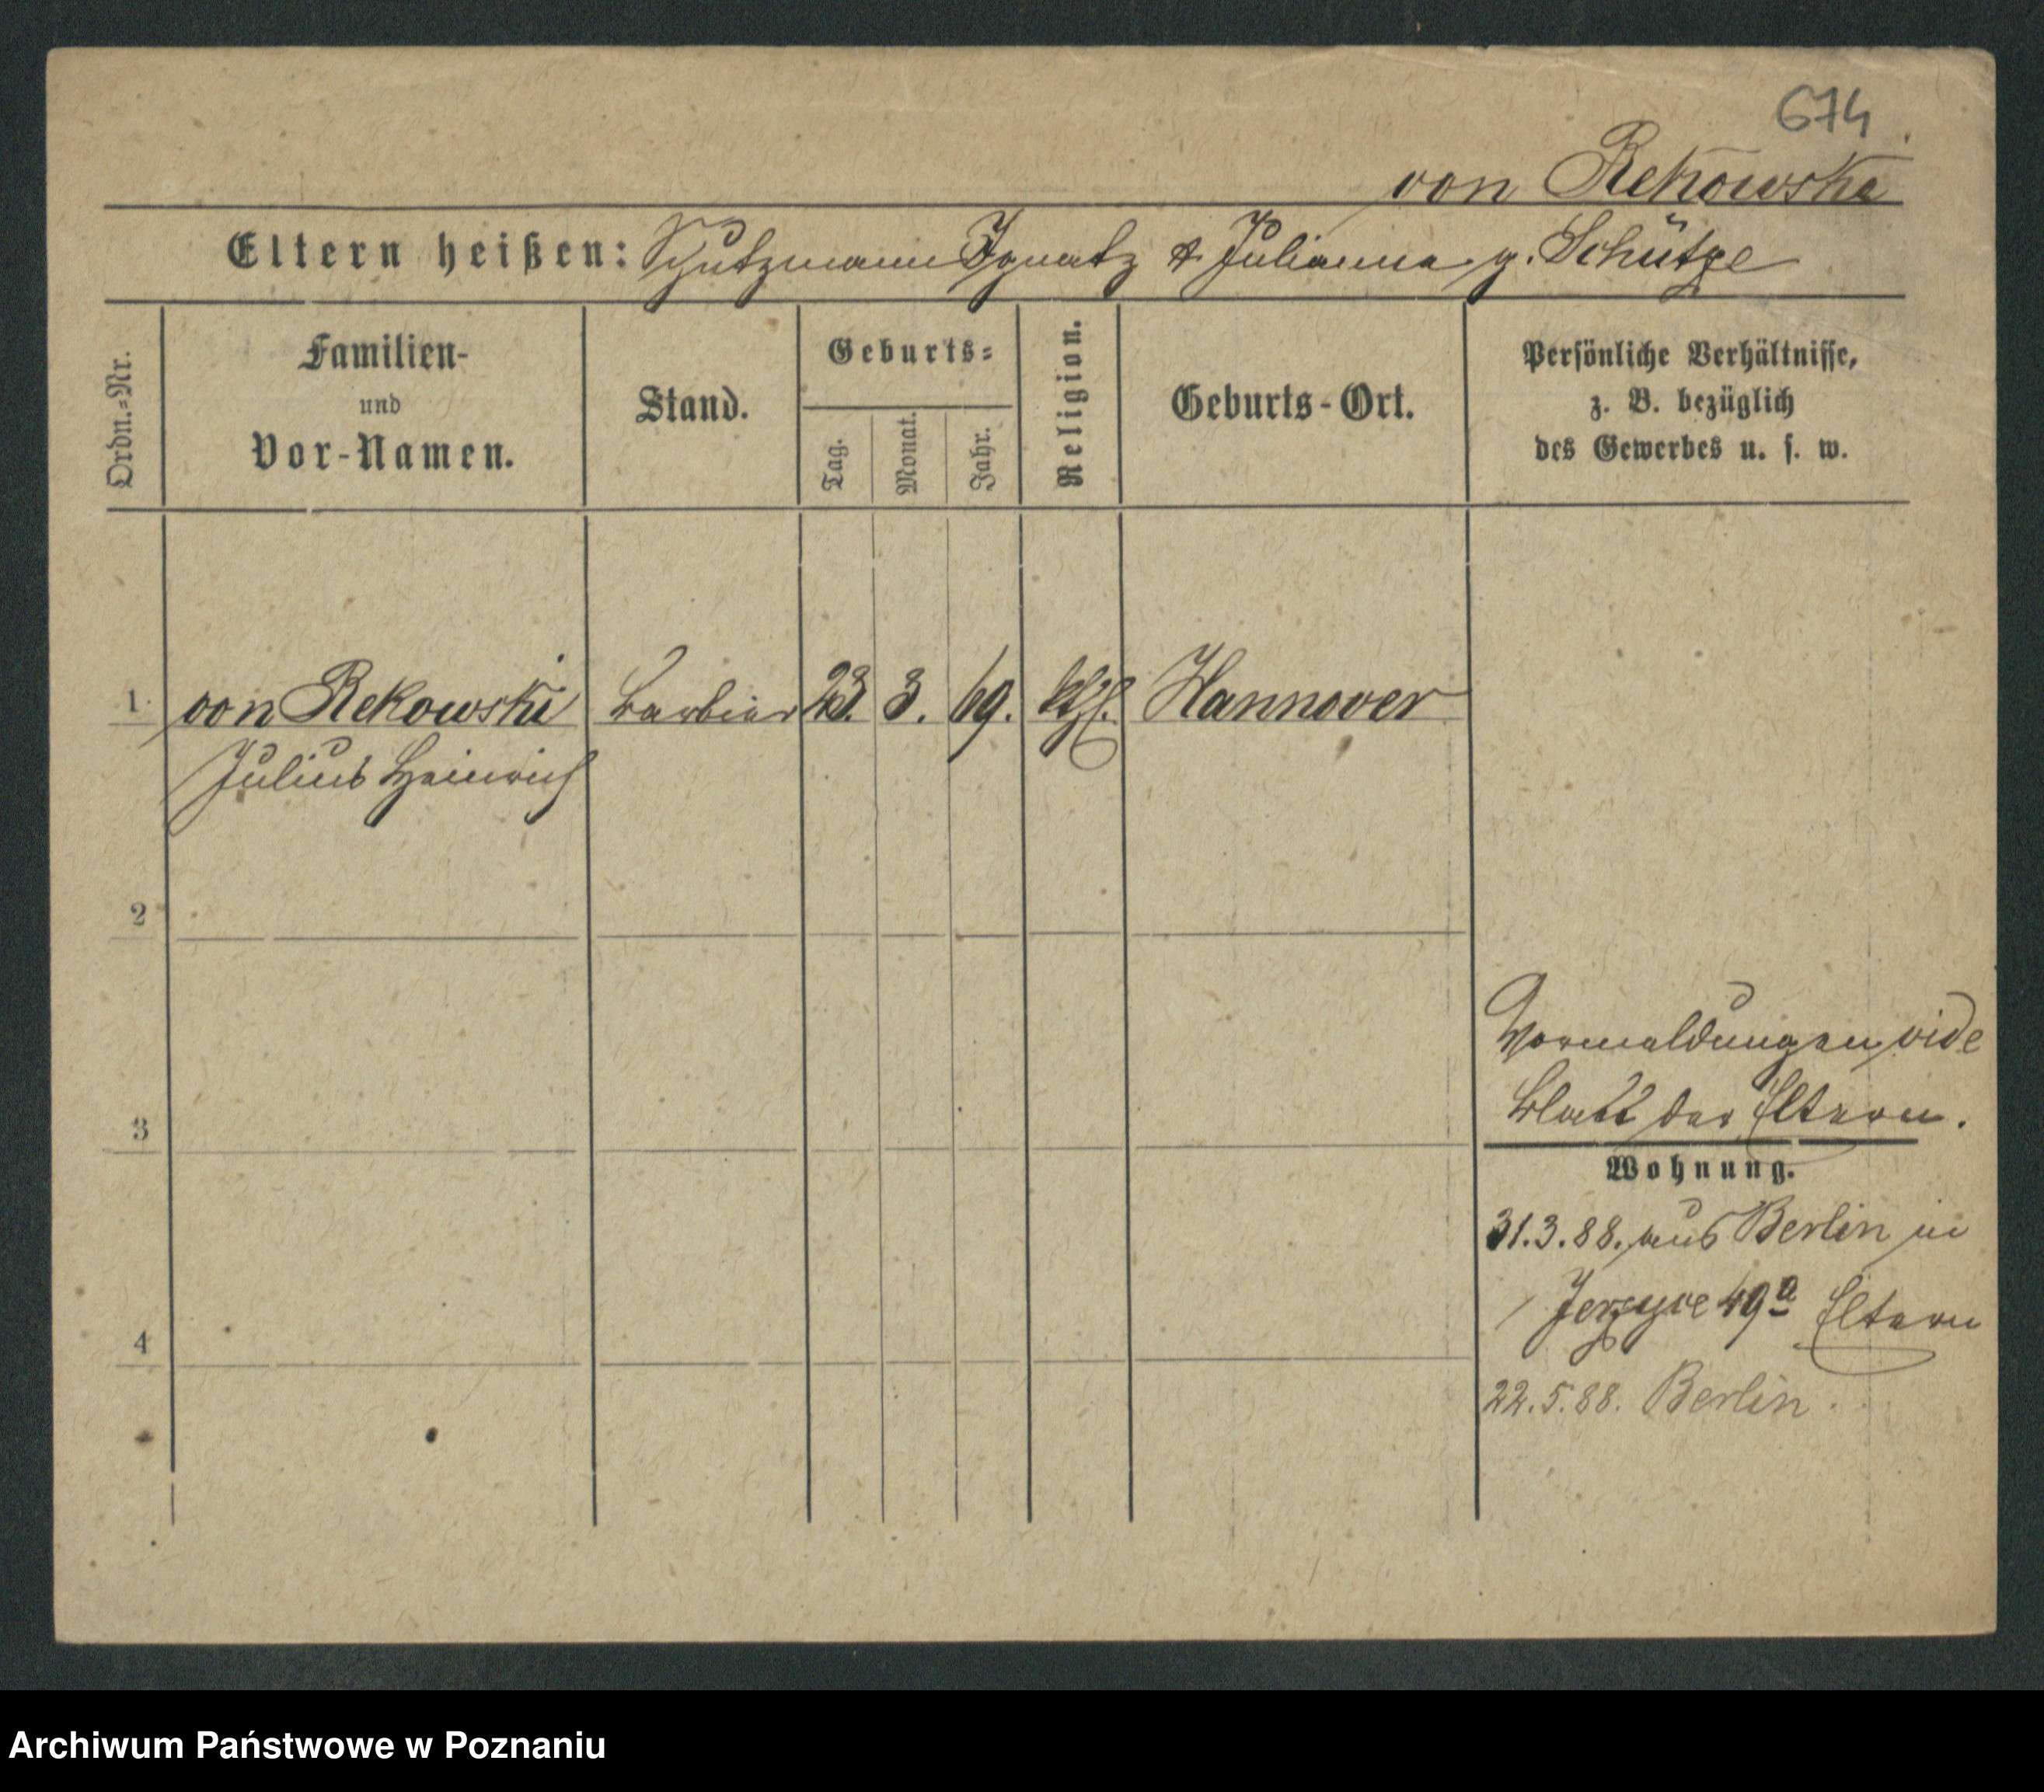 674
von Rekowski
Eltern heißen: Schutzmann Ignatz & Julianna g. Schütze
Ordn.=Nr.
Familien-
und
Vor-Namen.
Stand.
Geburts=
Tag.
Monat.
Jahr.
Religion.
Geburts-Ort.
Persönliche Verhältnisse,
z. B. bezüglich
des Gewerbes u. s. w.
1. von Rekowski Barbier 23. 3. 69. kthl. Hannover
Julius Heinrich
2
3
4
Vormeldungen vide
Blatt der Eltern.
Wohnung.
31.3.88. aus Berlin in
Jerzyce 49a Eltern
22.5.88. Berlin.
Archiwum Państwowe w Poznaniu